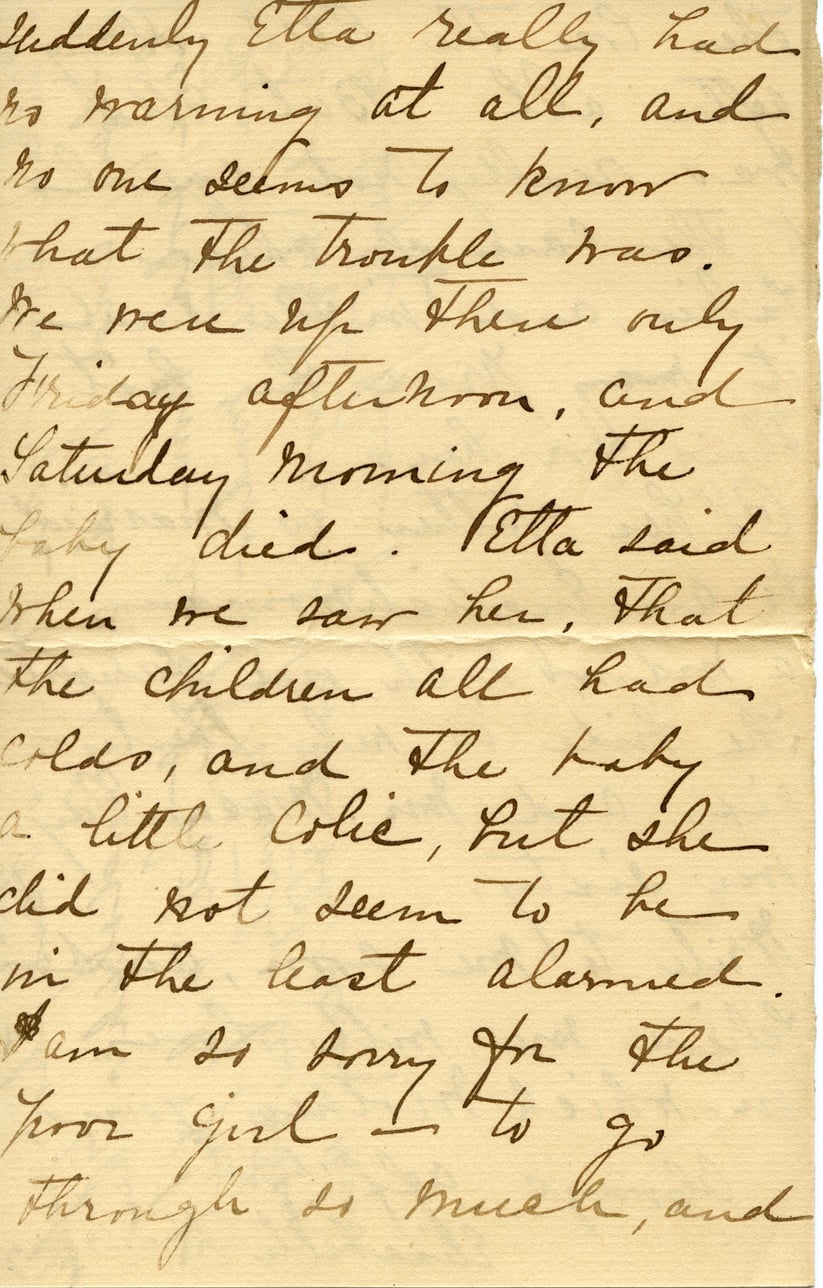 suddenly Etta really had
no warning at all, and
no one seems to know
what the trouble was.
We were up there only
Friday afternoon, and
Saturday morning the
baby died. Etta said
when we saw her, that
the children all had
colds, and the baby
a little colic, but she
did not seem to be
in the least alarmed.
I am so sorry for the
poor girl — to go
through so much, and